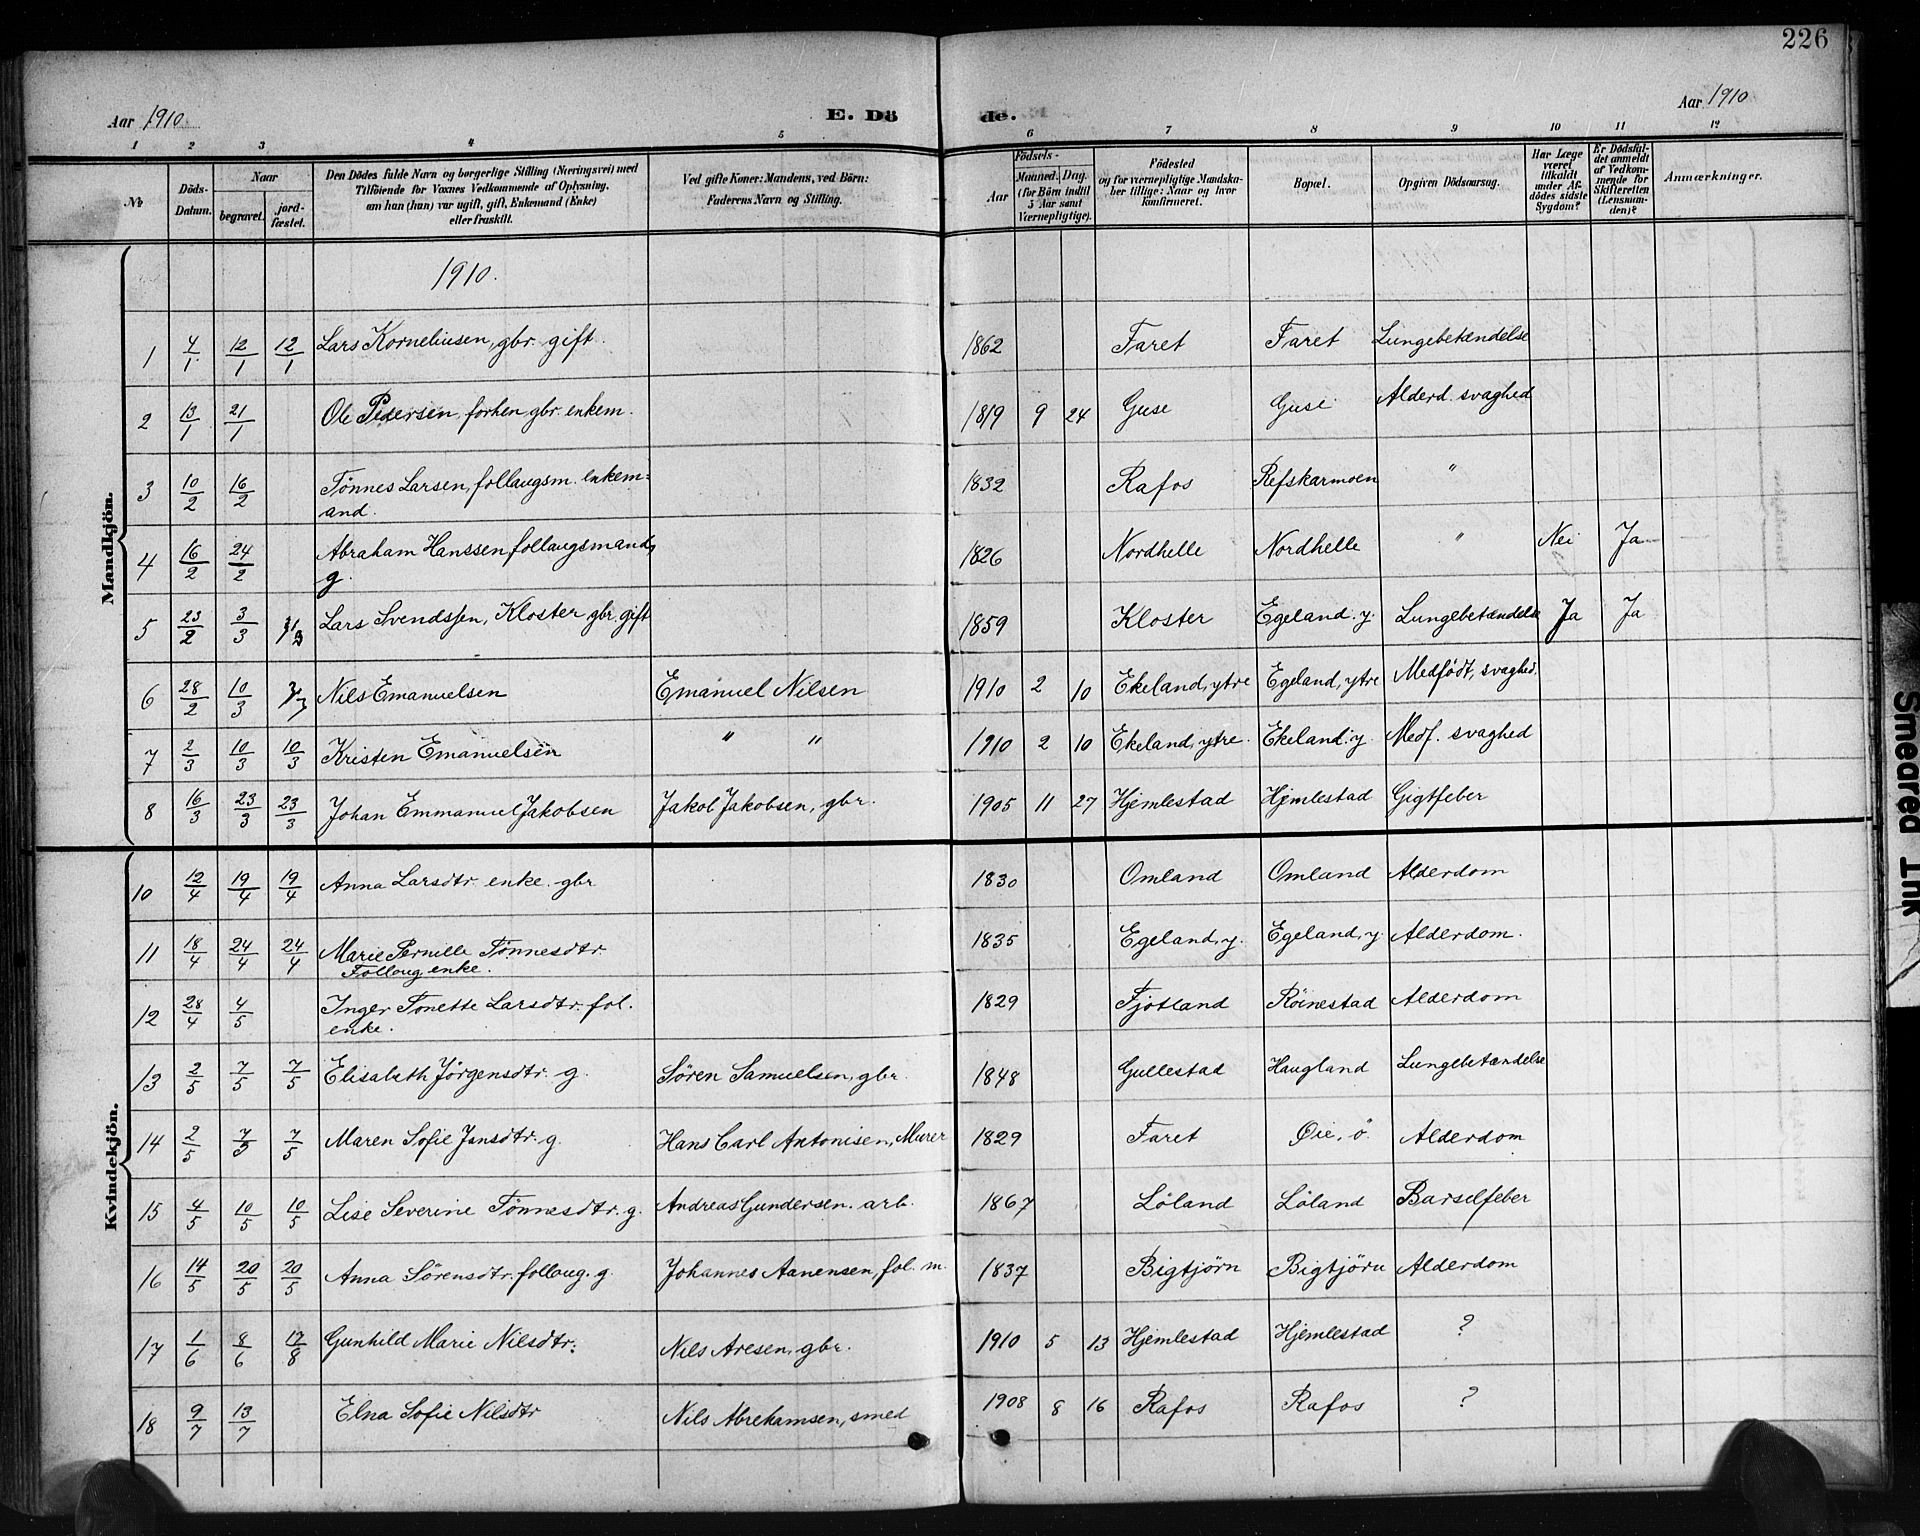 226
Aar 1910. E. Dö de. Aar 1910
1 2 3 4 5 6 7 8 9 10 11 12
No
Döds-Datum.
Naar
begravet.
jordfæstet.
Den Dödes fulde Navn og borgerlige Stilling (Næringsvei) med
Tilföiende for Voxnes Vedkommende af Oplysning,
om han (hun) var ugift, gift, Enkemand (Enke)
eller fraskilt.
Ved gifte Koner: Mandens, ved Börn:
Faderens Navn og Stilling.
Födsels-
Aar
Maaned. Dag.
(for Börn indtil
5 Aar samt
Værnepligtige).
Födested
og for værnepligtige Mandskaber tillige: Naar og hvor
konfirmeret.
Bopæl.
Opgiven Dödsaarsag.
Har Læge
været
tilkaldt
under Afdödes sidste
Sygdom?
Er Dödsfaldet anmeldt
af Vedkommende for
Skifteretten
(Lensmanden)?
Anmærkninger.
Mandkjön.
1910.
1 4/1 12/1 12/1 Lars Korneliusen, gbr. gift. 1862 Faret Faret Lungebetændelse
2 13/1 21/1 Ole Pedersen, forhen gbr. enkem. 1819 9 24 Guse Guse Alderd. svaghed
3 10/2 16/2 Tönnes Larsen, follaugsm. enkem= 1832 Rafos Refskarmoen "
and.
4 16/2 24/2 Abraham Hanssen follaugsmand, 1826 Nordhelle Nordhelle " Nei Ja
g.
5 23/2 3/3 Lars Svendssen, Kloster gbr. gift 1859 Kloster Egeland. y. Lungebetændelse Ja Ja
6 28/2 10/3 Nils Emanuelsen Emanuel Nilsen 1910 2 10 Ekeland, ytre Egeland, ytre Medfödt, svaghed.
7 2/3 10/3 10/3 Kristen Emanuelsen " " 1910 2 10 Ekeland, ytre. Ekeland. y. Medf. svaghed
8 16/3 23/3 23/3 Johan Emmanuel Jakobsen Jakob Jakobsen, gbr. 1905 11 27 Hjemlestad Hjemlestad Gigtfeber
Kvindekjön.
10 12/4 19/4 19/4 Anna Larsdtr. enke. gbr 1830 Omland Omland Alderdom
11 18/4 24/4 24/4 Marie Pernille Tönnesdtr. 1835 Egeland, y. Egeland, y. Alderdom.
Follaug enke.
12 28/4 4/5 Inger Tonette Larsdtr. fol. 1829 Fjotland Röinestad Alderdom
enke.
13 2/5 7/5 7/5 Elisabeth Jörgensdtr. g. Sören Samuelsen, gbr. 1848 Gullestad Haugland Lungebetændelse
14 2/5 7/5 7/5 Maren Sofie Jansdtr. g. Hans Carl Antonisen, Murer 1829 Faret Øie, ö. Alderdom
15 4/5 10/5 10/5 Lise Severine Tönnesdtr. g. Andreas Gundersen. arb. 1867 Löland Löland Barselfeber
16 14/5 20/5 20/5 Anna Sörensdtr. follaug. g. Johannes Aanensen, fol. m. 1837 Bigtjörn Bigtjörn Alderdom
17 1/6 8/6 12/8 Gunhild Marie Nilsdtr. Nils Aresen, gbr. 1910 5 13 Hjemlestad Hjemlestad ?
18 9/7 13/7 Elna Sofie Nilsdtr Nils Abrehamsen, smed 1908 8 16 Rafos Rafos ?
Smeared Ink